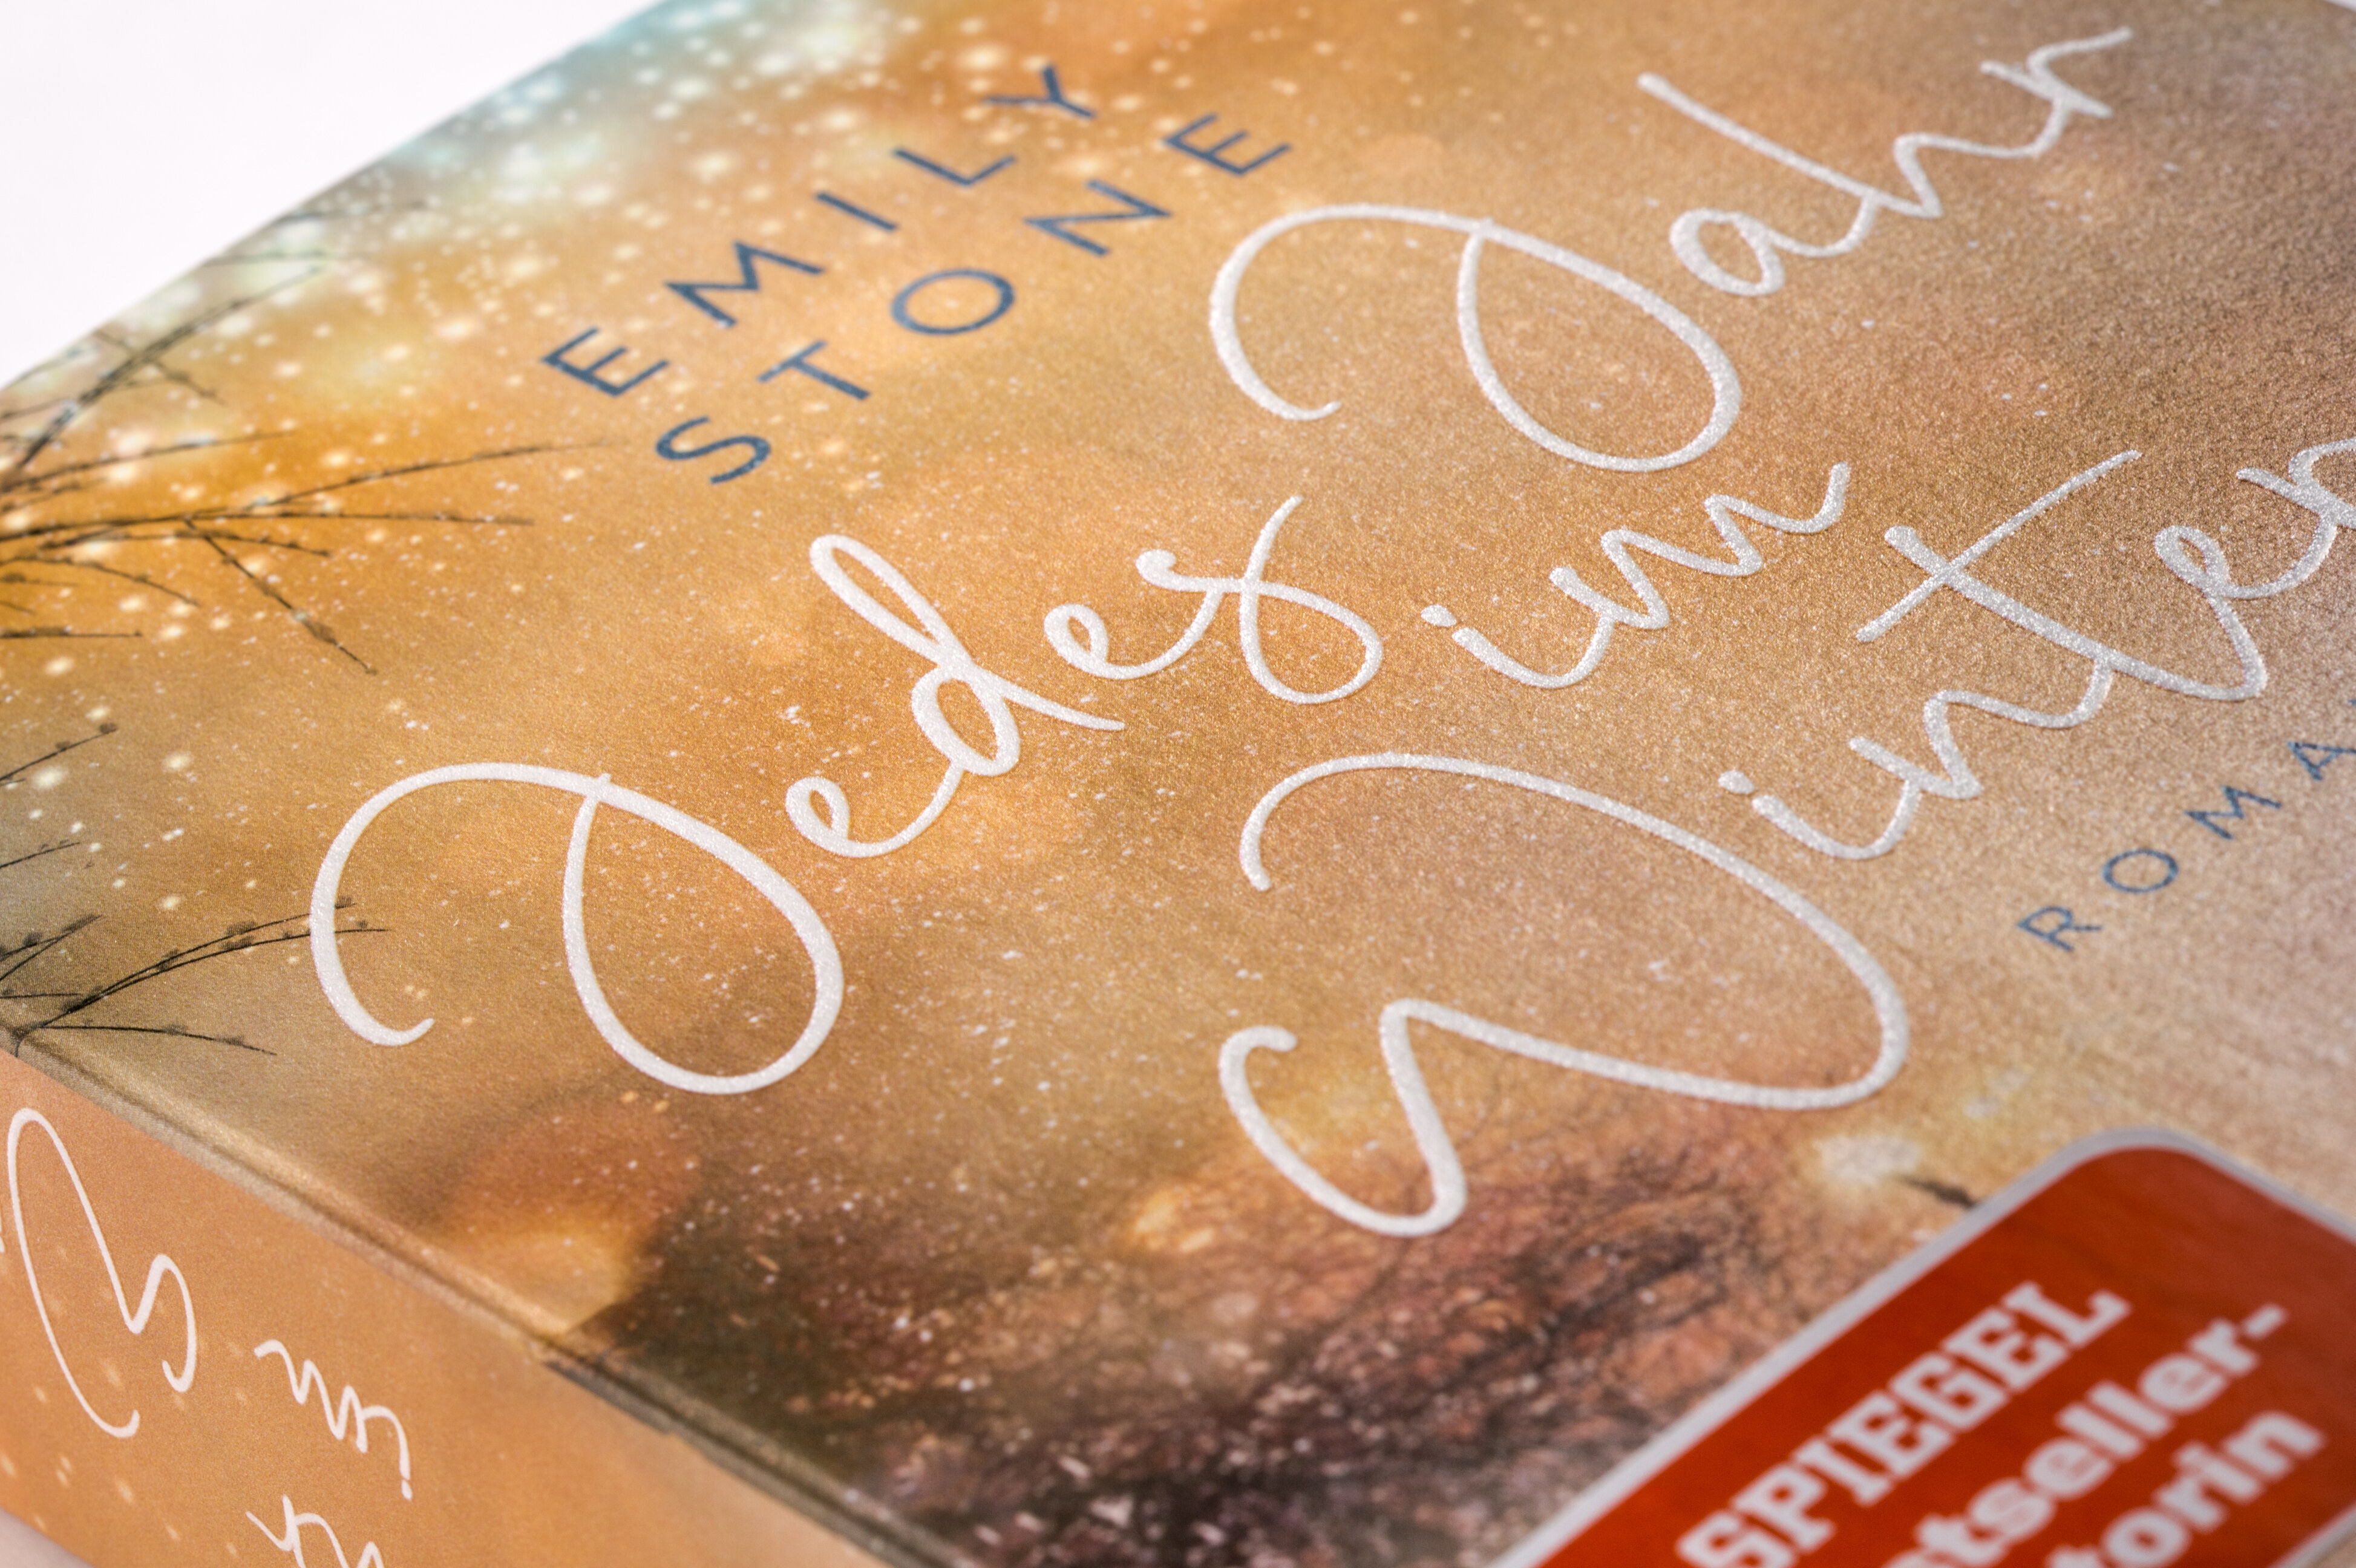 EMILY
STONE
Jedes Jahr
im
Winter
ROMA
SPIEGEL
Bestseller-
im